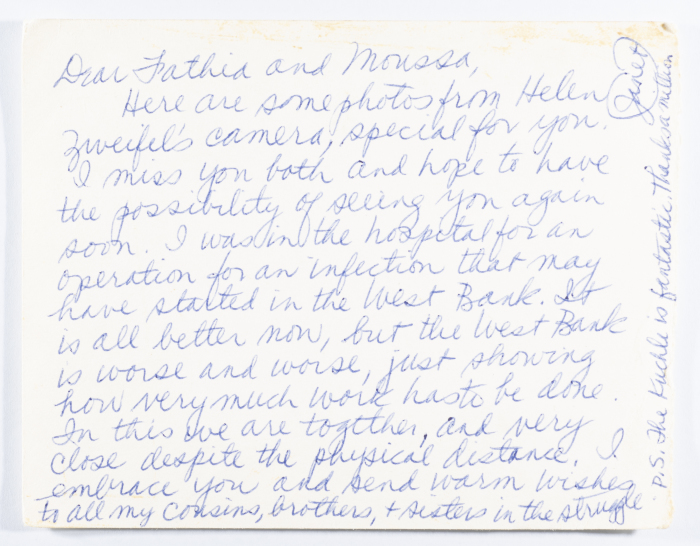 Dear Fathia and Moussa,
Here are some photos from Helen
Zweifel's camera, special for you.
I miss you both and hope to have
the possibility of seeing you again
soon. I was in the hospital for an
operation for an infection that may
have started in the West Bank. It
is all better now, but the West Bank
is worse and worse, just showing
how very much work has to be done.
In this we are together, and very
close despite the physical distance. I
embrace you and send warm wishes
to all my cousins, brothers, + sisters in the struggle.
Janet
P.S. The Kuchle is fantastic. Thanks a million